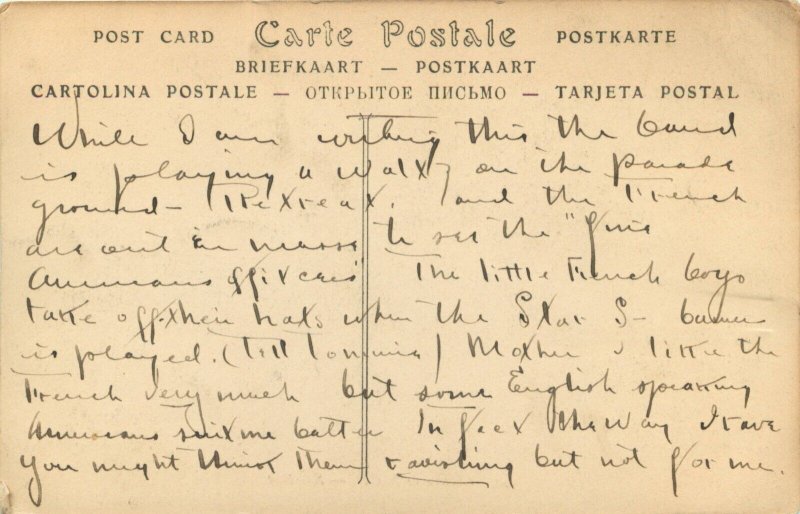 POST CARD Carte Postale POSTKARTE
BRIEFKAART — POSTKAART
CARTOLINA POSTALE — ОТКРЫТОЕ ПИСЬМО — TARJETA POSTAL
While I am writing this the band
is playing a waltz on the parade
ground – Retreat. and the French
are out en masse to see the "fine
Americans officers" The little French boys
take off their hats when the Star S– banner
is played. (Tell Tommie) Mother I like the
French very much but some English speaking
Americans suit me better In fact the way I rave
you might think them ravishing but not for me.